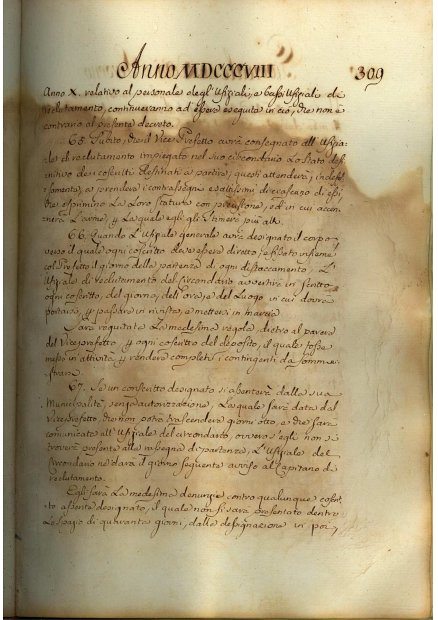 Anno MDCCCVIII 309
Anno X. relativo al personale degl'Ufiziali, e bassi Ufiziali di
reclutamento, continueranno ad essere eseguite in ciò, che non è
contrario al presente decreto.
65. Subito, che il Vice Prefetto avrà consegnato all'Ufizia-
le di reclutamento impiegato nel suo circondario lo stato def-
nitivo dei coscritti destinati a partire, questi attenderà, indefes-
samente, a prendere i contrassegni esatissimi di ciascuno di essi,
che esprimino la loro statura con precisione, ed in cui accen-
nerà l'arme, per la quale egli gli stimerà più atti.
66. Quando l'Ufiziale generale avrà designato il corpo
verso il quale ogni coscritto deve essere diretto, e fissato insieme
col Prefetto il giorno della partenza di ogni distaccamento, l'
Ufiziale di reclutamento del circondario avvertirà in scritto
ogni coscritto, del giorno, dell'ora, e del luogo in cui dovrà
portarsi, per passare in rivista, e mettersi in marcia
Sarà eseguita la medesima regola, dietro al parere
del Viceprefetto, per ogni coscritto del deposito, il quale fosse
messo in attività per rendere completi i contingenti da sommi-
strare.
67. Se un coscritto designato si assenterà dalla sua
Municipalità, senza autorizzazione, la quale sarà data dal
Viceprefetto, che non potrà trascendere giorni otto, e che sarà
comunicata all'Ufiziale del circondario, ovvero s'egli non si
troverà presente alla rassegna di partenza, l'Ufiziale del
circondario ne darà il giorno seguente avviso al Capitano di
reclutamento.
Egli farà la medesima denunzia contro qualunque coscrit-
to assente designato, il quale non si sarà presentato dentro
lo spazio di quaranta giorni, dalla designazione in poi,